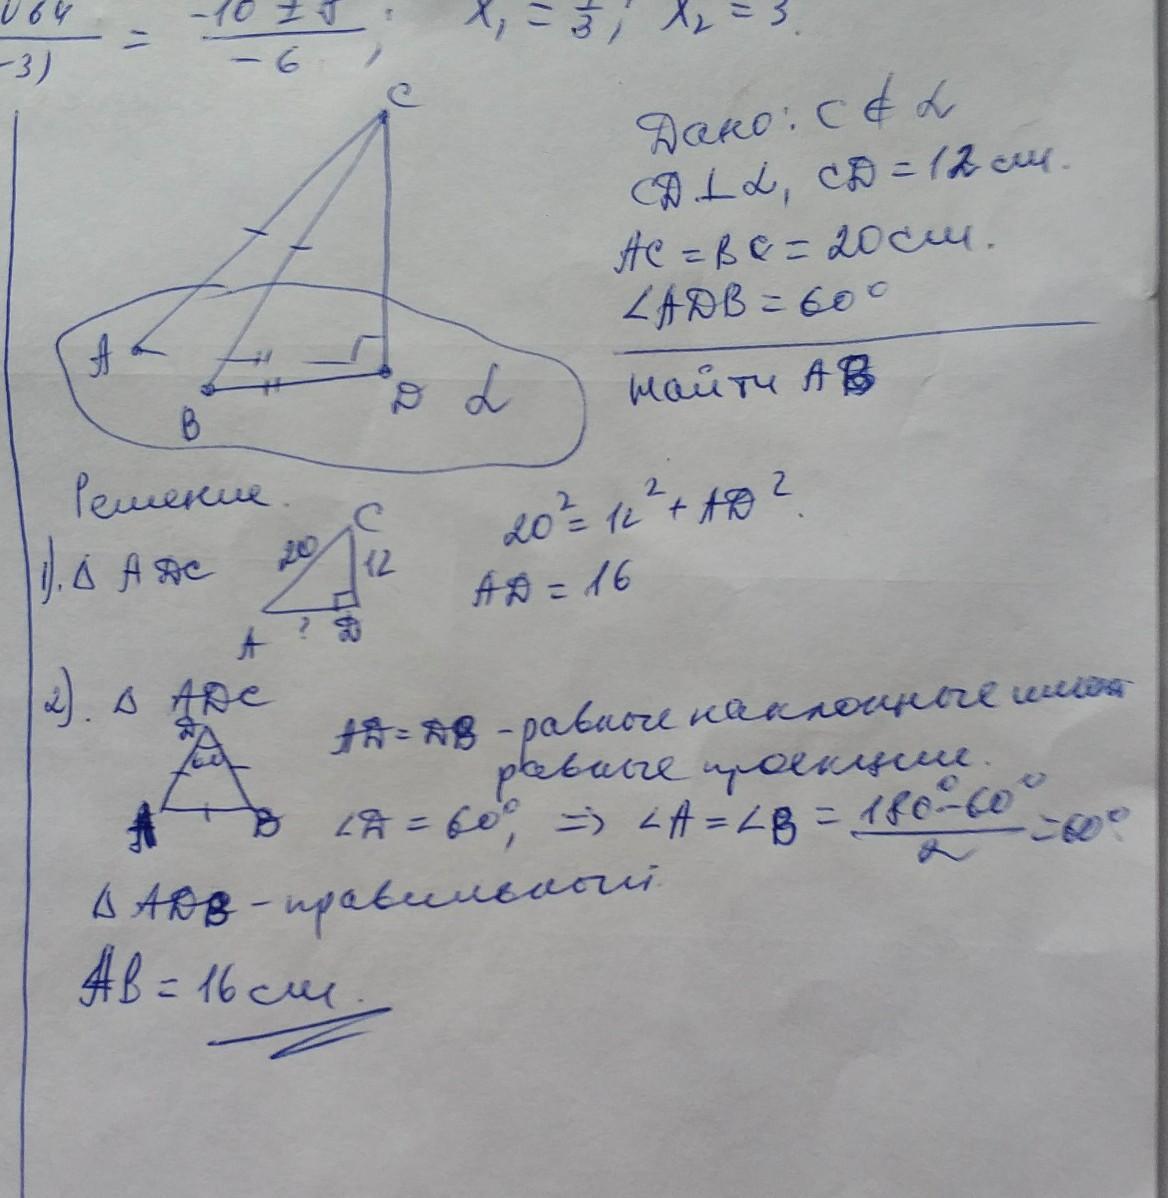 √64 / -3) = -10 ± 8 / -6 ; x₁ = 1/3; x₂ = 3.
C
A
B
D
α
Дано: C ∉ α
CD ⊥ α, CD = 12 см.
AC = BC = 20 см.
∠ADB = 60°
Найти AB
Решение.
1). Δ ADC
20
C
12
A
?
D
20² = 12² + AD².
AD = 16
2). Δ ADC
D
60
A
B
AD = DB - равные наклонные имеют
равные проекции.
∠D = 60°, => ∠A = ∠B = 180° - 60° / 2 = 60°
Δ ADB - правильный.
AB = 16 см.